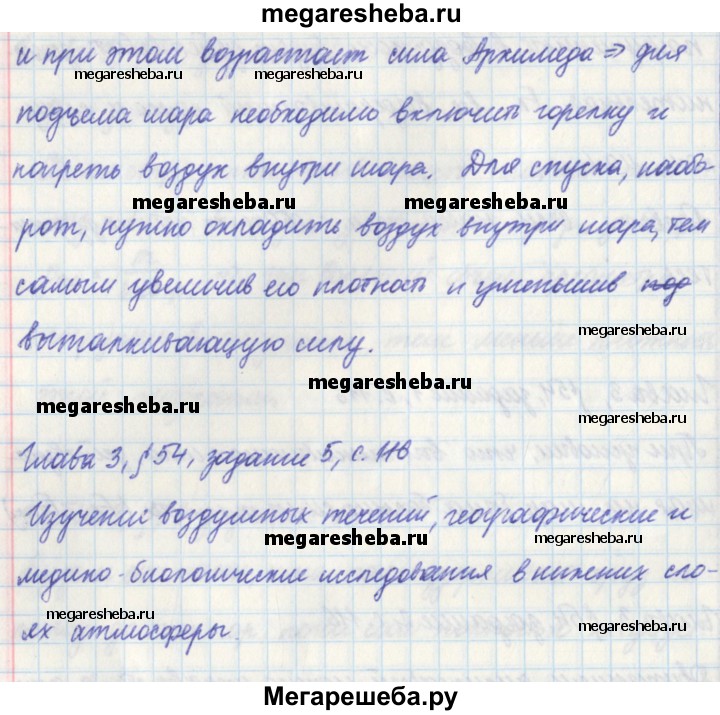 megaresheba.ru
и при этом возрастает сила Архимеда ⇒ для
megaresheba.ru megaresheba.ru megaresheba.ru
подъема шара необходимо включить горелку и
нагреть воздух внутри шара. Для спуска, наоб-
megaresheba.ru megaresheba.ru
рот, нужно охладить воздух внутри шара, тем
самым увеличив его плотность и уменьшив под
выталкивающую силу.
megaresheba.ru
megaresheba.ru
megaresheba.ru
Глава 3, §54, задание 5, с. 116
Изучение воздушных течений, географические и
megaresheba.ru megaresheba.ru
медико-биологические исследования в нижних сло-
ях атмосферы.
megaresheba.ru megaresheba.ru
Мегарешеба.ру